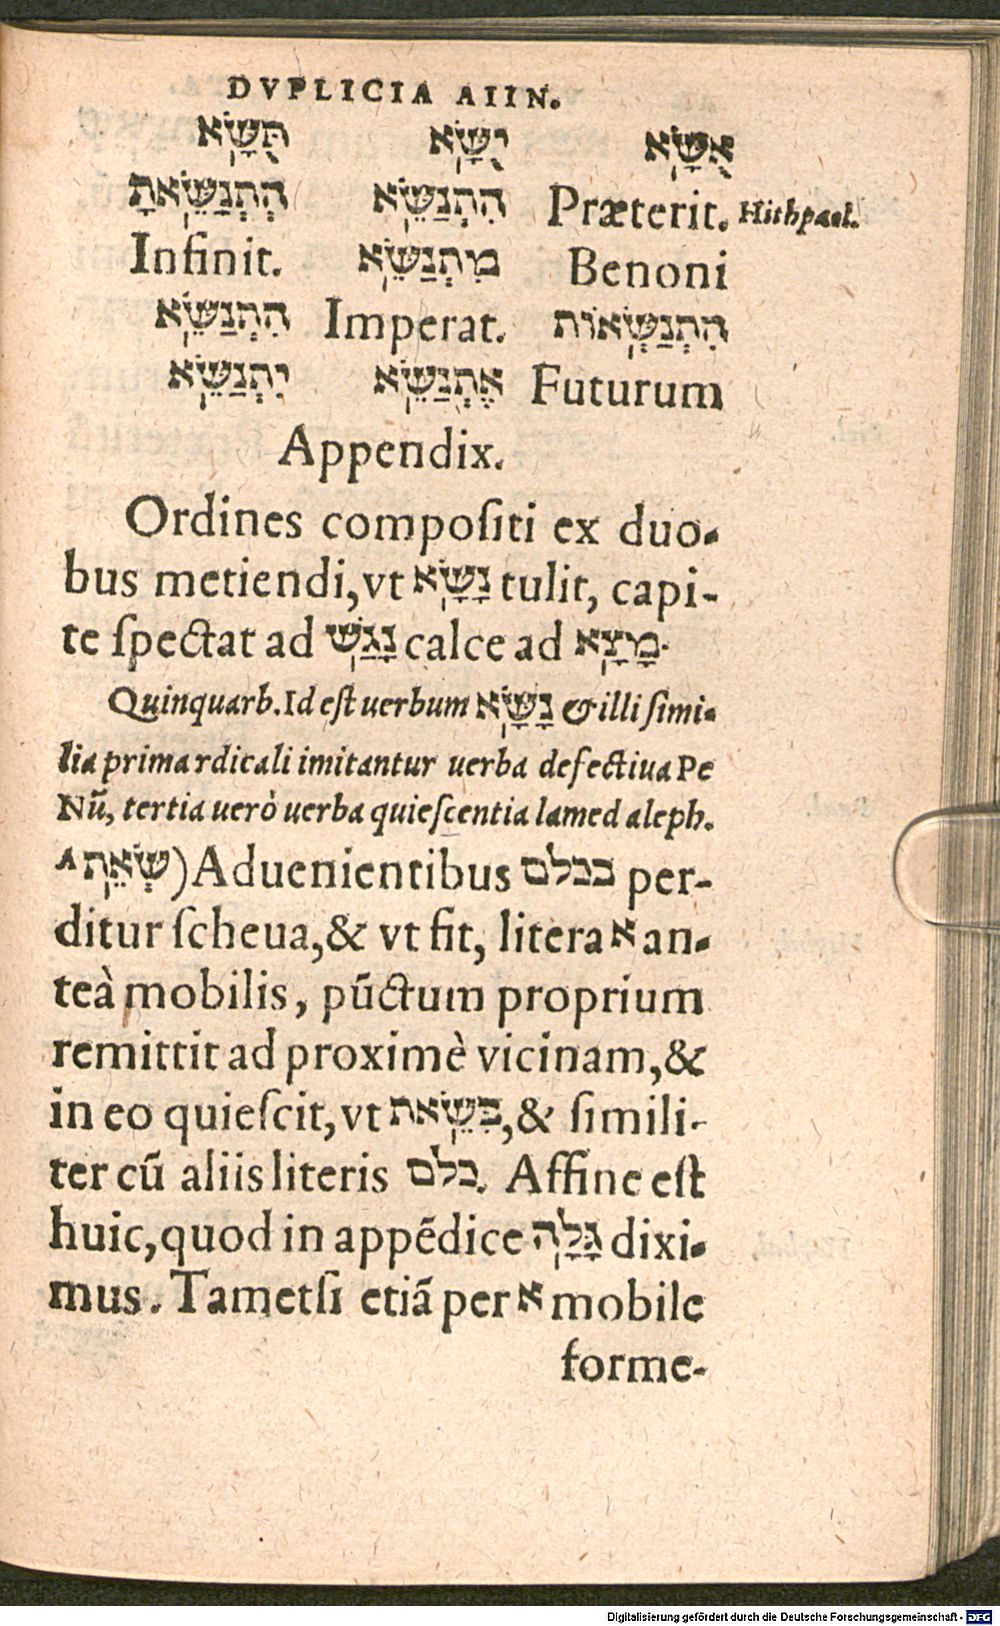 DVPLICIA AIIN.
אֻשָּׂא יֻשָּׂא תֻּשָּׂא
Præterit. הִתְנַשֵּׂא הִתְנַשֵּׂאתָ Hithpael.
Benoni מִתְנַשֵּׂא Infinit.
הִתְנַשְּׂאוֹת Imperat. הִתְנַשֵּׂא
Futurum אֶתְנַשֵּׂא יִתְנַשֵּׂא
Appendix.
Ordines compoſiti ex duo-
bus metiendi, vt נָשָׂא tulit, capi-
te ſpectat ad נָגַשׁ calce ad מָצָא.
Quinquarb. Id eſt uerbum נָשָׂא & illi ſimi-
lia prima rdicali imitantur uerba defectiua Pe
Nũ, tertia uerò uerba quieſcentia lamed aleph.
שְׂאֵת) Aduenientibus בכלם per-
ditur ſcheua, & vt fit, litera א an-
teà mobilis, pũctum proprium
remittit ad proximè vicinam, &
in eo quieſcit, vt בִּשֵׂאת, & ſimili-
ter cũ aliis literis כלם. Affine eſt
huic, quod in appẽdice גָּלָה dixi-
mus. Tametſi etiã per א mobile
forme-
Digitalisierung gefördert durch die Deutsche Forschungsgemeinschaft - DFG